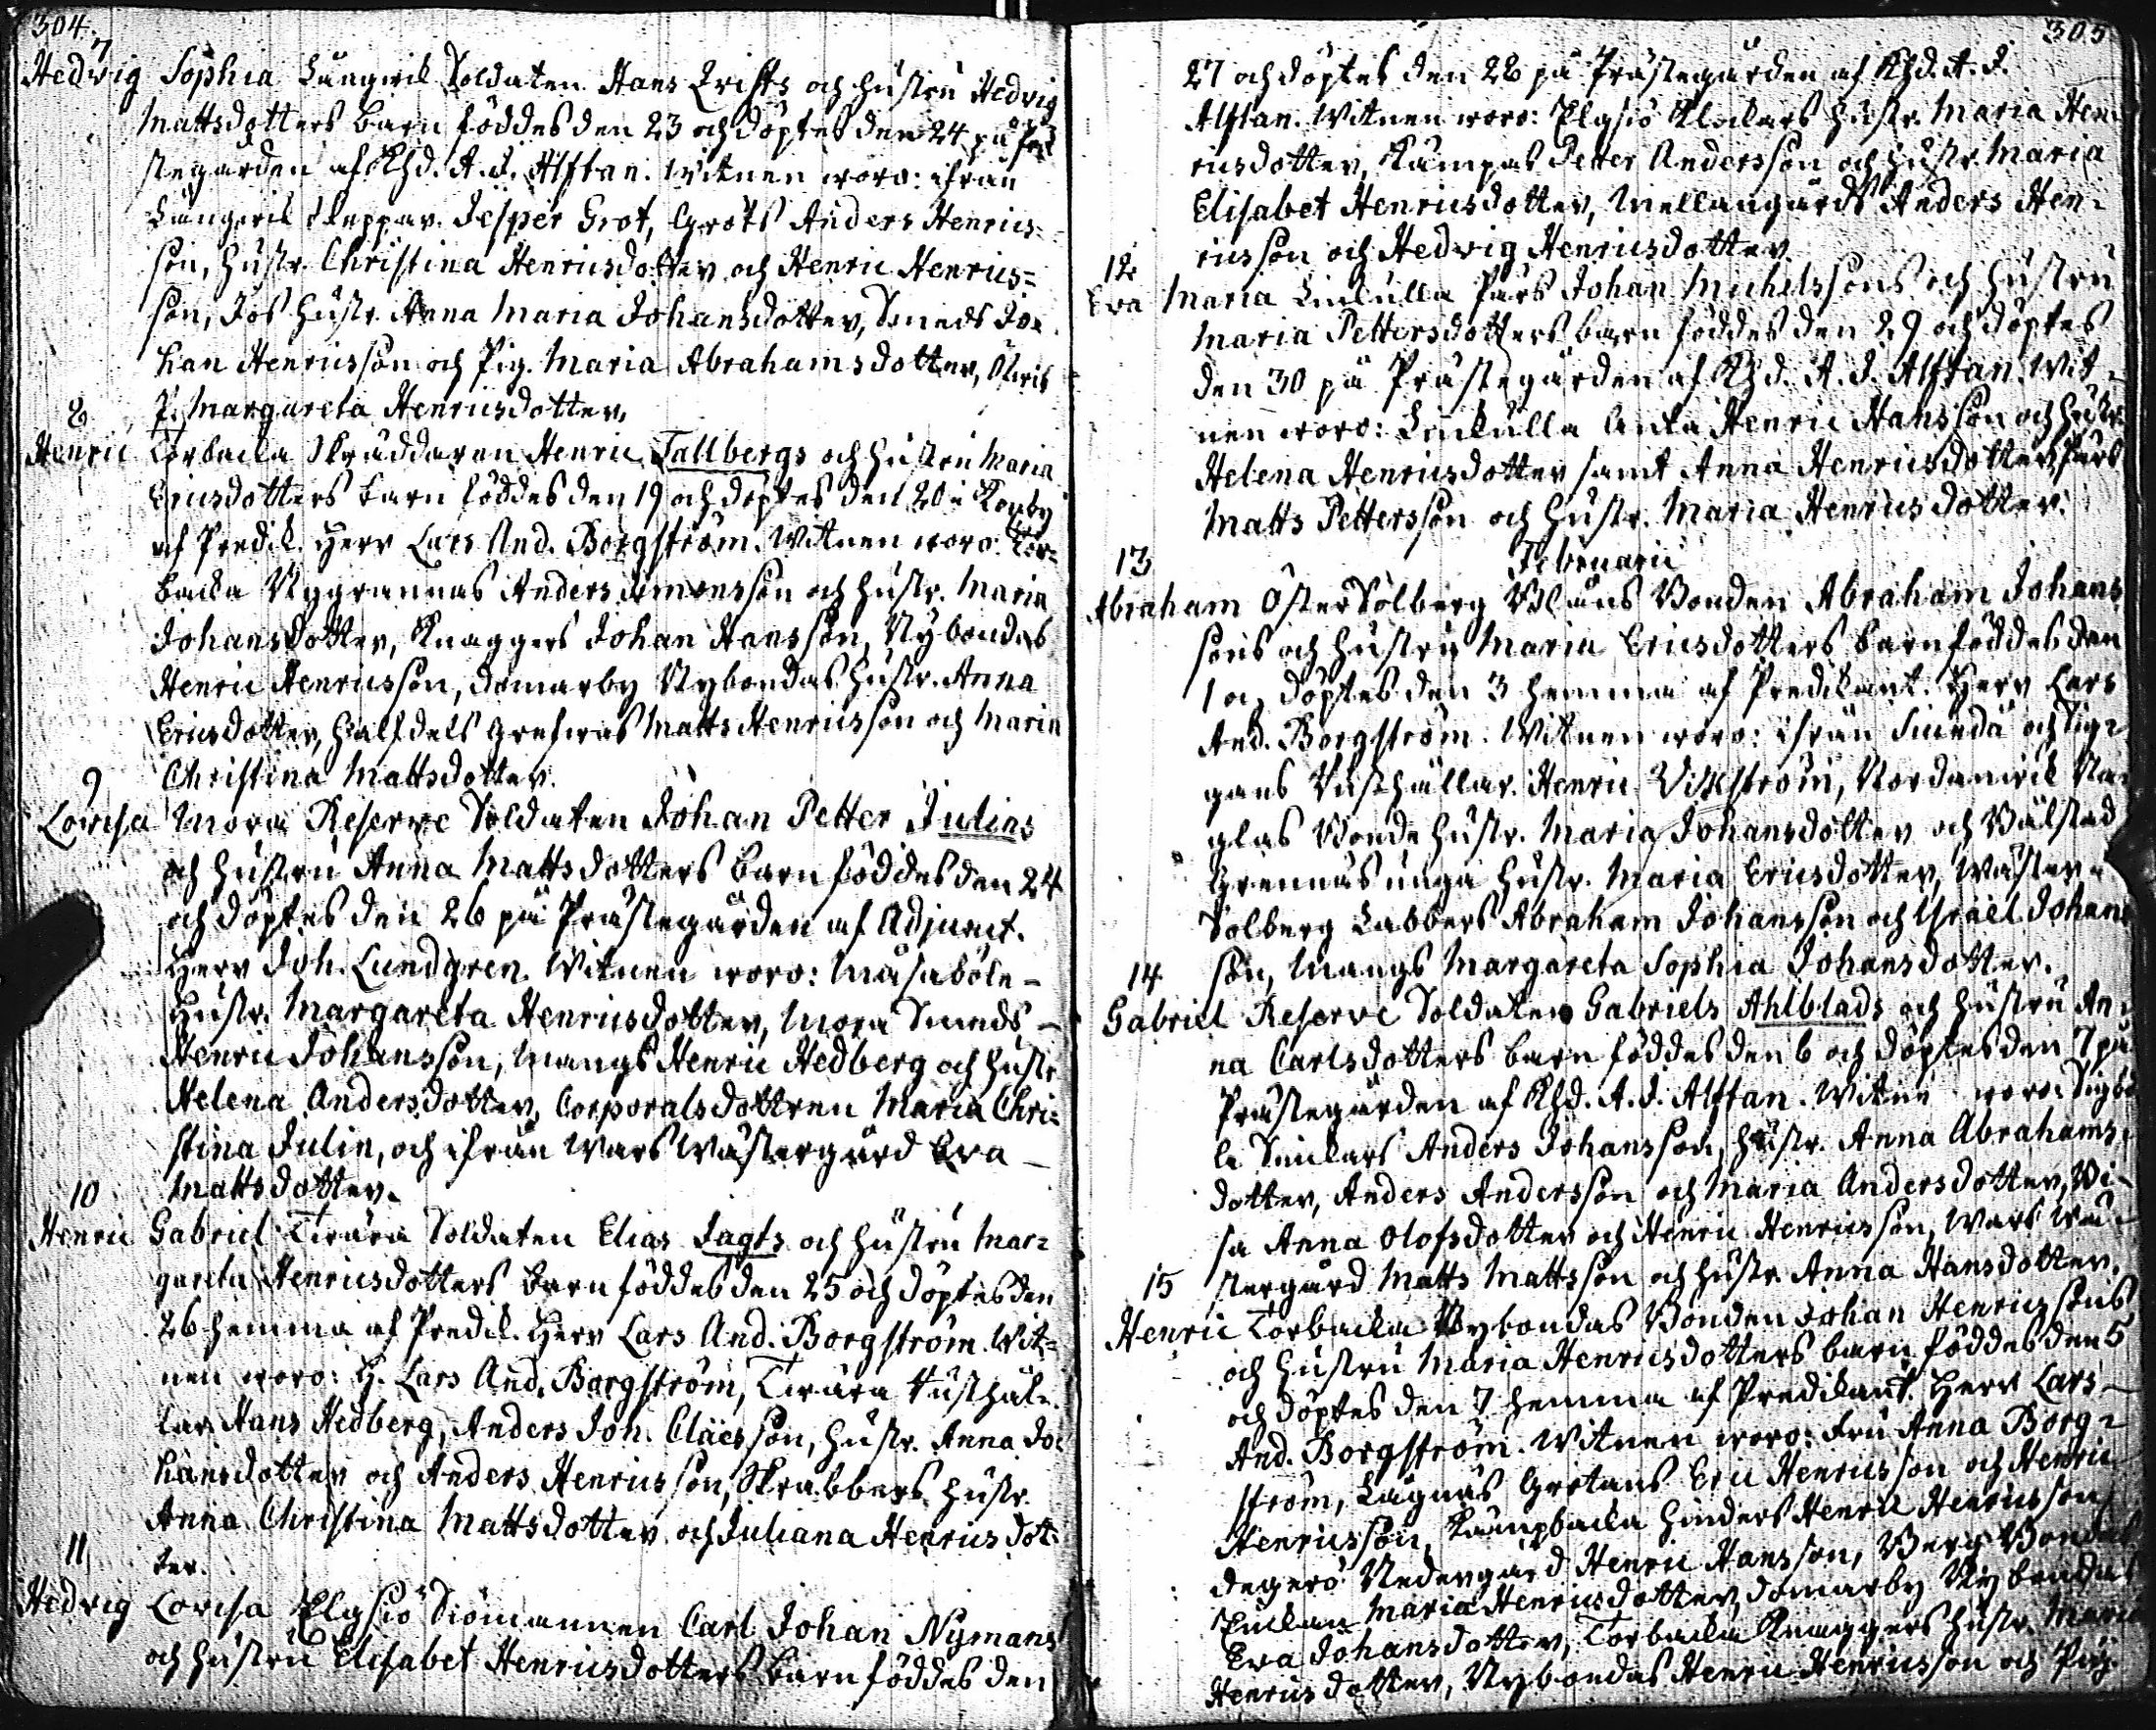 304.
7
Hedvig Sophia Långvik Soldaten Hans Qvists och hustru Hedvig
Mattsdotters barn föddes den 23 och döptes den 24 på Prä
stegården af Khd. A. J. Alftan. Witnen woro: ifrån
Långvik Skeppar. Jesper Grot, Grots Anders Henrics=
son, hustr. Christina Henricsdotter och Henric Henrics=
son, Jos hustr. Anna Maria Johansdotter, Smeds Jo=
han Henricsson och Pig. Maria Abrahamsdotter,
P. Margareta Henricsdotter.
8
Henric Torbacka Skräddaren Henric Tallbergs och hustru Maria
Ericsdotters barn föddes den 19 och döptes den 20 i Kouby
af Predik. Herr Lars And. Borgström. Witnen woro: Tor=
backa Nygrannas Anders Simonsson och hustr. Maria
Johansdotter, Knaggers Johan Hansson, Nybondas
Henric Henricsson, Domarby Nybondas hustr. Anna
Ericsdotter, Halfdels Grefwas Matts Henricsson och Maria
Christina Mattsdotter.
9
Lovisa Mora Reserve Soldaten Johan Petter Julins
och hustru Anna Mattsdotters barn föddes den 24
och döptes den 26 på Prästegården af Adjunct.
Herr Joh. Lundgren. Witnen woro: Masaböle-
hustr. Margareta Henricsdotter, Mora Smeds-
Henric Johansson, Mangs Henric Hedberg och hustr
Helena Andersdotter, Corporalsdottren Maria Chri=
stina Julin, och ifrån Wars Wästergård Eva-
Mattsdotter.
10
Henric Gabriel Twärä Soldaten Elias Jagts och hustru Mar=
gareta Henricsdotters barn föddes den 25 och döptes den
26 hemma af Predik. Herr Lars And. Borgström. Wit=
nen woro: H. Lars And. Borgström, Twärä Rusthål=
lar Hans Hedberg, Anders Joh. Claësson, hustr. Anna Jo=
hansdotter och Anders Henricsson, Skrabbers hustr.
Anna Christina Mattsdotter och Juliana Henricsdot=
ter.
11
Hedvig Lovisa Elgsiö Siömannen Carl Johan Nymans
och hustru Elisabet Henricsdotters barn föddes den
305
27 och döptes den 28 på Prästegården af Khd. A. J.
Alftan. Witnen woro: Elgsiö Klockars hustr. Maria Hen=
ricsdotter, Kämpas Petter Andersson och hustr. Maria
Elisabet Henricsdotter, Mellangårds Anders Hen=
ricsson och Hedvig Henricsdotter.
12
Eva Maria Linkulla Pärs Johan Michelssons och hustru
Maria Pettersdotters barn föddes den 29 och döptes
den 30 på Prästegården af Khd. A. J. Alftan. Wit=
nen woro: Linkulla Anka Henric Hansson och hustr.
Helena Henricsdotter samt Anna Henricsdotter, Pärs
Matts Pettersson och hustr. Maria Henricsdotter.
Februarii
13
Abraham Öster Solberg Blaus Bonden Abraham Johans
sons och hustru Maria Ericsdotters barn föddes den
1 oc döptes den 3 hemma af Predikant. Herr Lars
And. Borgström. Witnen woro: ifrån Siundå och Tip=
gans Rusthållar. Henric Vikström, Nordanwik Na=
glas Bonde hustr. Maria Johansdotter och Bålstad
Grennäs unga hustr. Maria Ericsdotter, Wäster=
Solberg Labbers Abraham Johansson och Israel Johans
son, Mangs Margareta Sophia Johansdotter.
14
Gabriel Reserve Soldaten Gabriels Ahlblads och hustru An=
na Carlsdotters barn föddes den 6 och döptes den 7 på
Prästegården af Khd. A. J. Alftan. Witne woro: Sigbö
le Sunkars Anders Johansson, hustr. Anna Abrahams=
dotter, Anders Andersson och Maria Andersdotter, Wi=
sa Anna Olofsdotter och Henric Henricsson, Wars Wä=
stergård Matts Mattsson och hustr. Anna Hansdotter.
15
Henric Torbacka Nybondas Bonden Johan Henricssons
och hustru Maria Henricsdotters barn föddes den 5
och döptes den 7 hemma af Predikant. Herr Lars-
And. Borgström. Witnen woro: Fru Anna Borg=
ström, Lågnäs Gretans Eric Henricsson och Henric
Henricsson, Kämpbacka Hinders Henric Henricsson,
Degerö Nedergård Henric Hansson, Berg Bondes
Enckan Maria Henricsdotter, Domarby Nybondas
Eva Johansdotter, Torbacka Knaggers hustr. Maria
Henricsdotter, Nybondas Henric Henricsson och Pig.